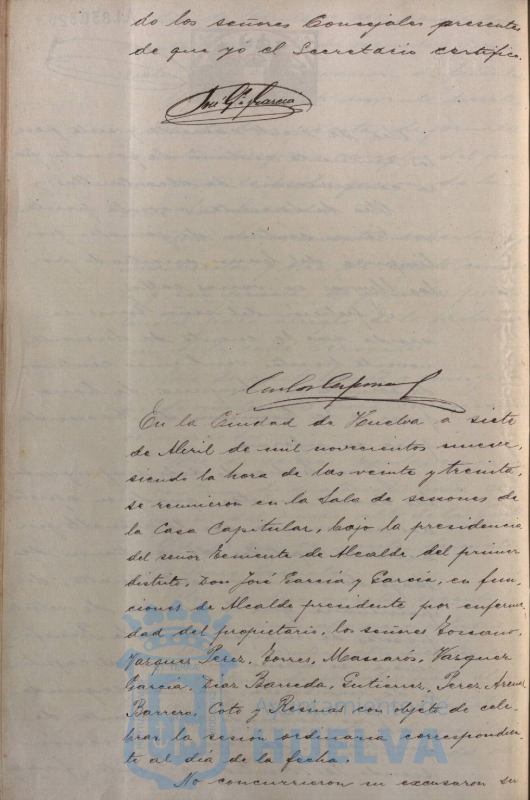 do los señores Concejales presentes
de que yo el Secretario certifico.
José Gª García
Carlos
En la Ciudad de Huelva a siete
de Abril de mil novecientos nueve,
siendo la hora de las veinte y treinta,
se reunieron en la Sala de sesiones de
la Casa Capitular, bajo la presidencia
del señor Teniente de Alcalde del primer
distrito, Don José García y García, en fun-
ciones de Alcalde presidente por enferme-
dad del propietario, los señores Toscano,
Vazquez Perez, Torres, Mascarós, Vazquez
García, Diaz Barreda, Gutierrez, Perez
Barrero, Coto y Resinas con objeto de cele-
brar la sesión ordinaria correspondien-
te al día de la fecha.
No concurrieron ni excusaron su
Ayuntamiento de
HUELVA